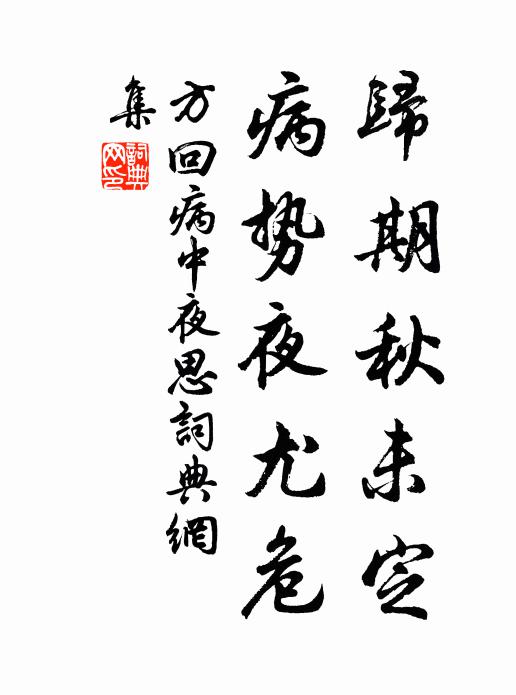 歸期秋未定
病势夜尤危
方回病中夜思詞典網
集
詞典网印